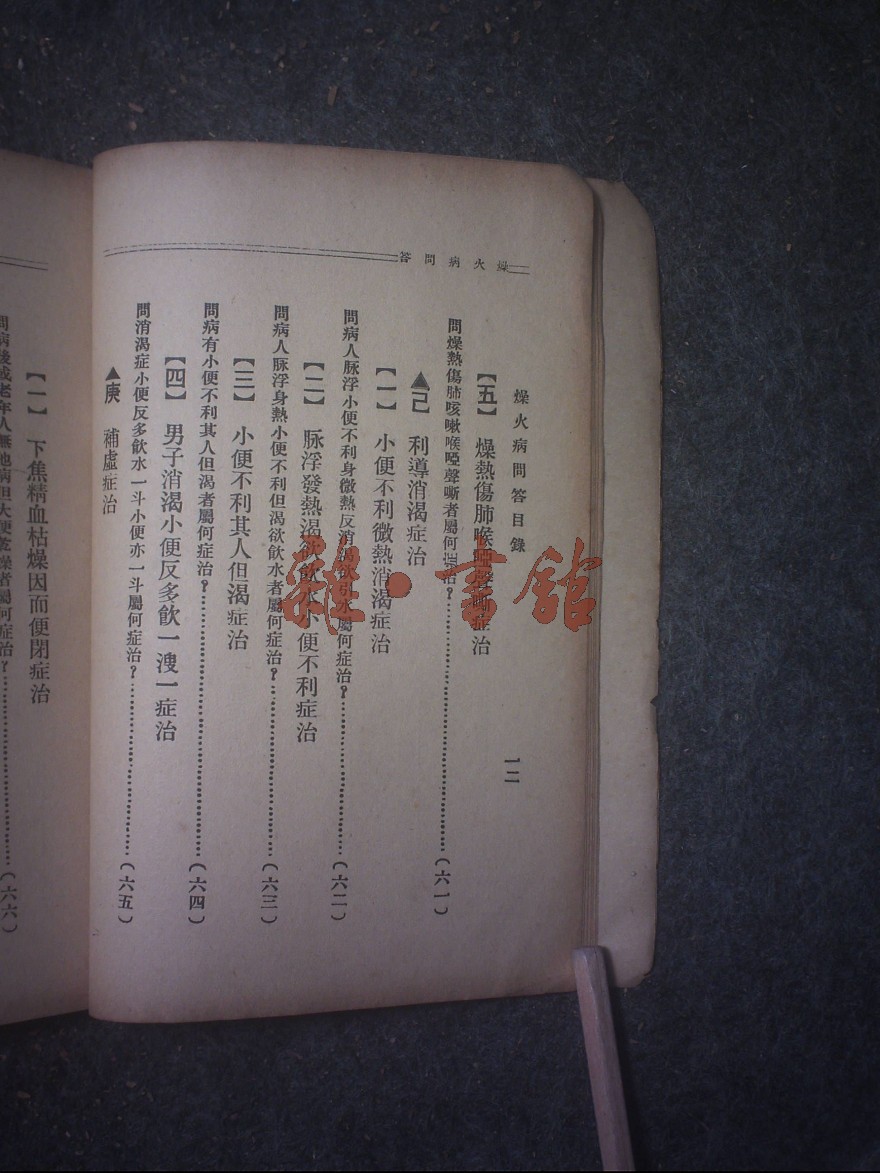 燥火病問答
燥火病問答目錄
一二
【五】 燥熱傷肺喉啞聲嘶症治
問燥熱傷肺咳嗽喉啞聲嘶者屬何症治？……(六一)
▲己 利導消渴症治
【一】 小便不利微熱消渴症治
問病人脉浮小便不利身微熱反消渴欲引水屬何症治？……(六二)
【二】 脉浮發熱渴欲飲水小便不利症治
問病人脉浮身熱小便不利但渴欲飲水者屬何症治？……(六三)
【三】 小便不利其人但渴症治
問病有小便不利其人但渴者屬何症治？……(六四)
【四】 男子消渴小便反多飲一溲一症治
問消渴症小便反多飲水一斗小便亦一斗屬何症治？……(六五)
▲庚 補虛症治
【一】 下焦精血枯燥因而便閉症治
問病後或老年人無他病但大便乾燥者屬何症治？……(六六)
雜·書館